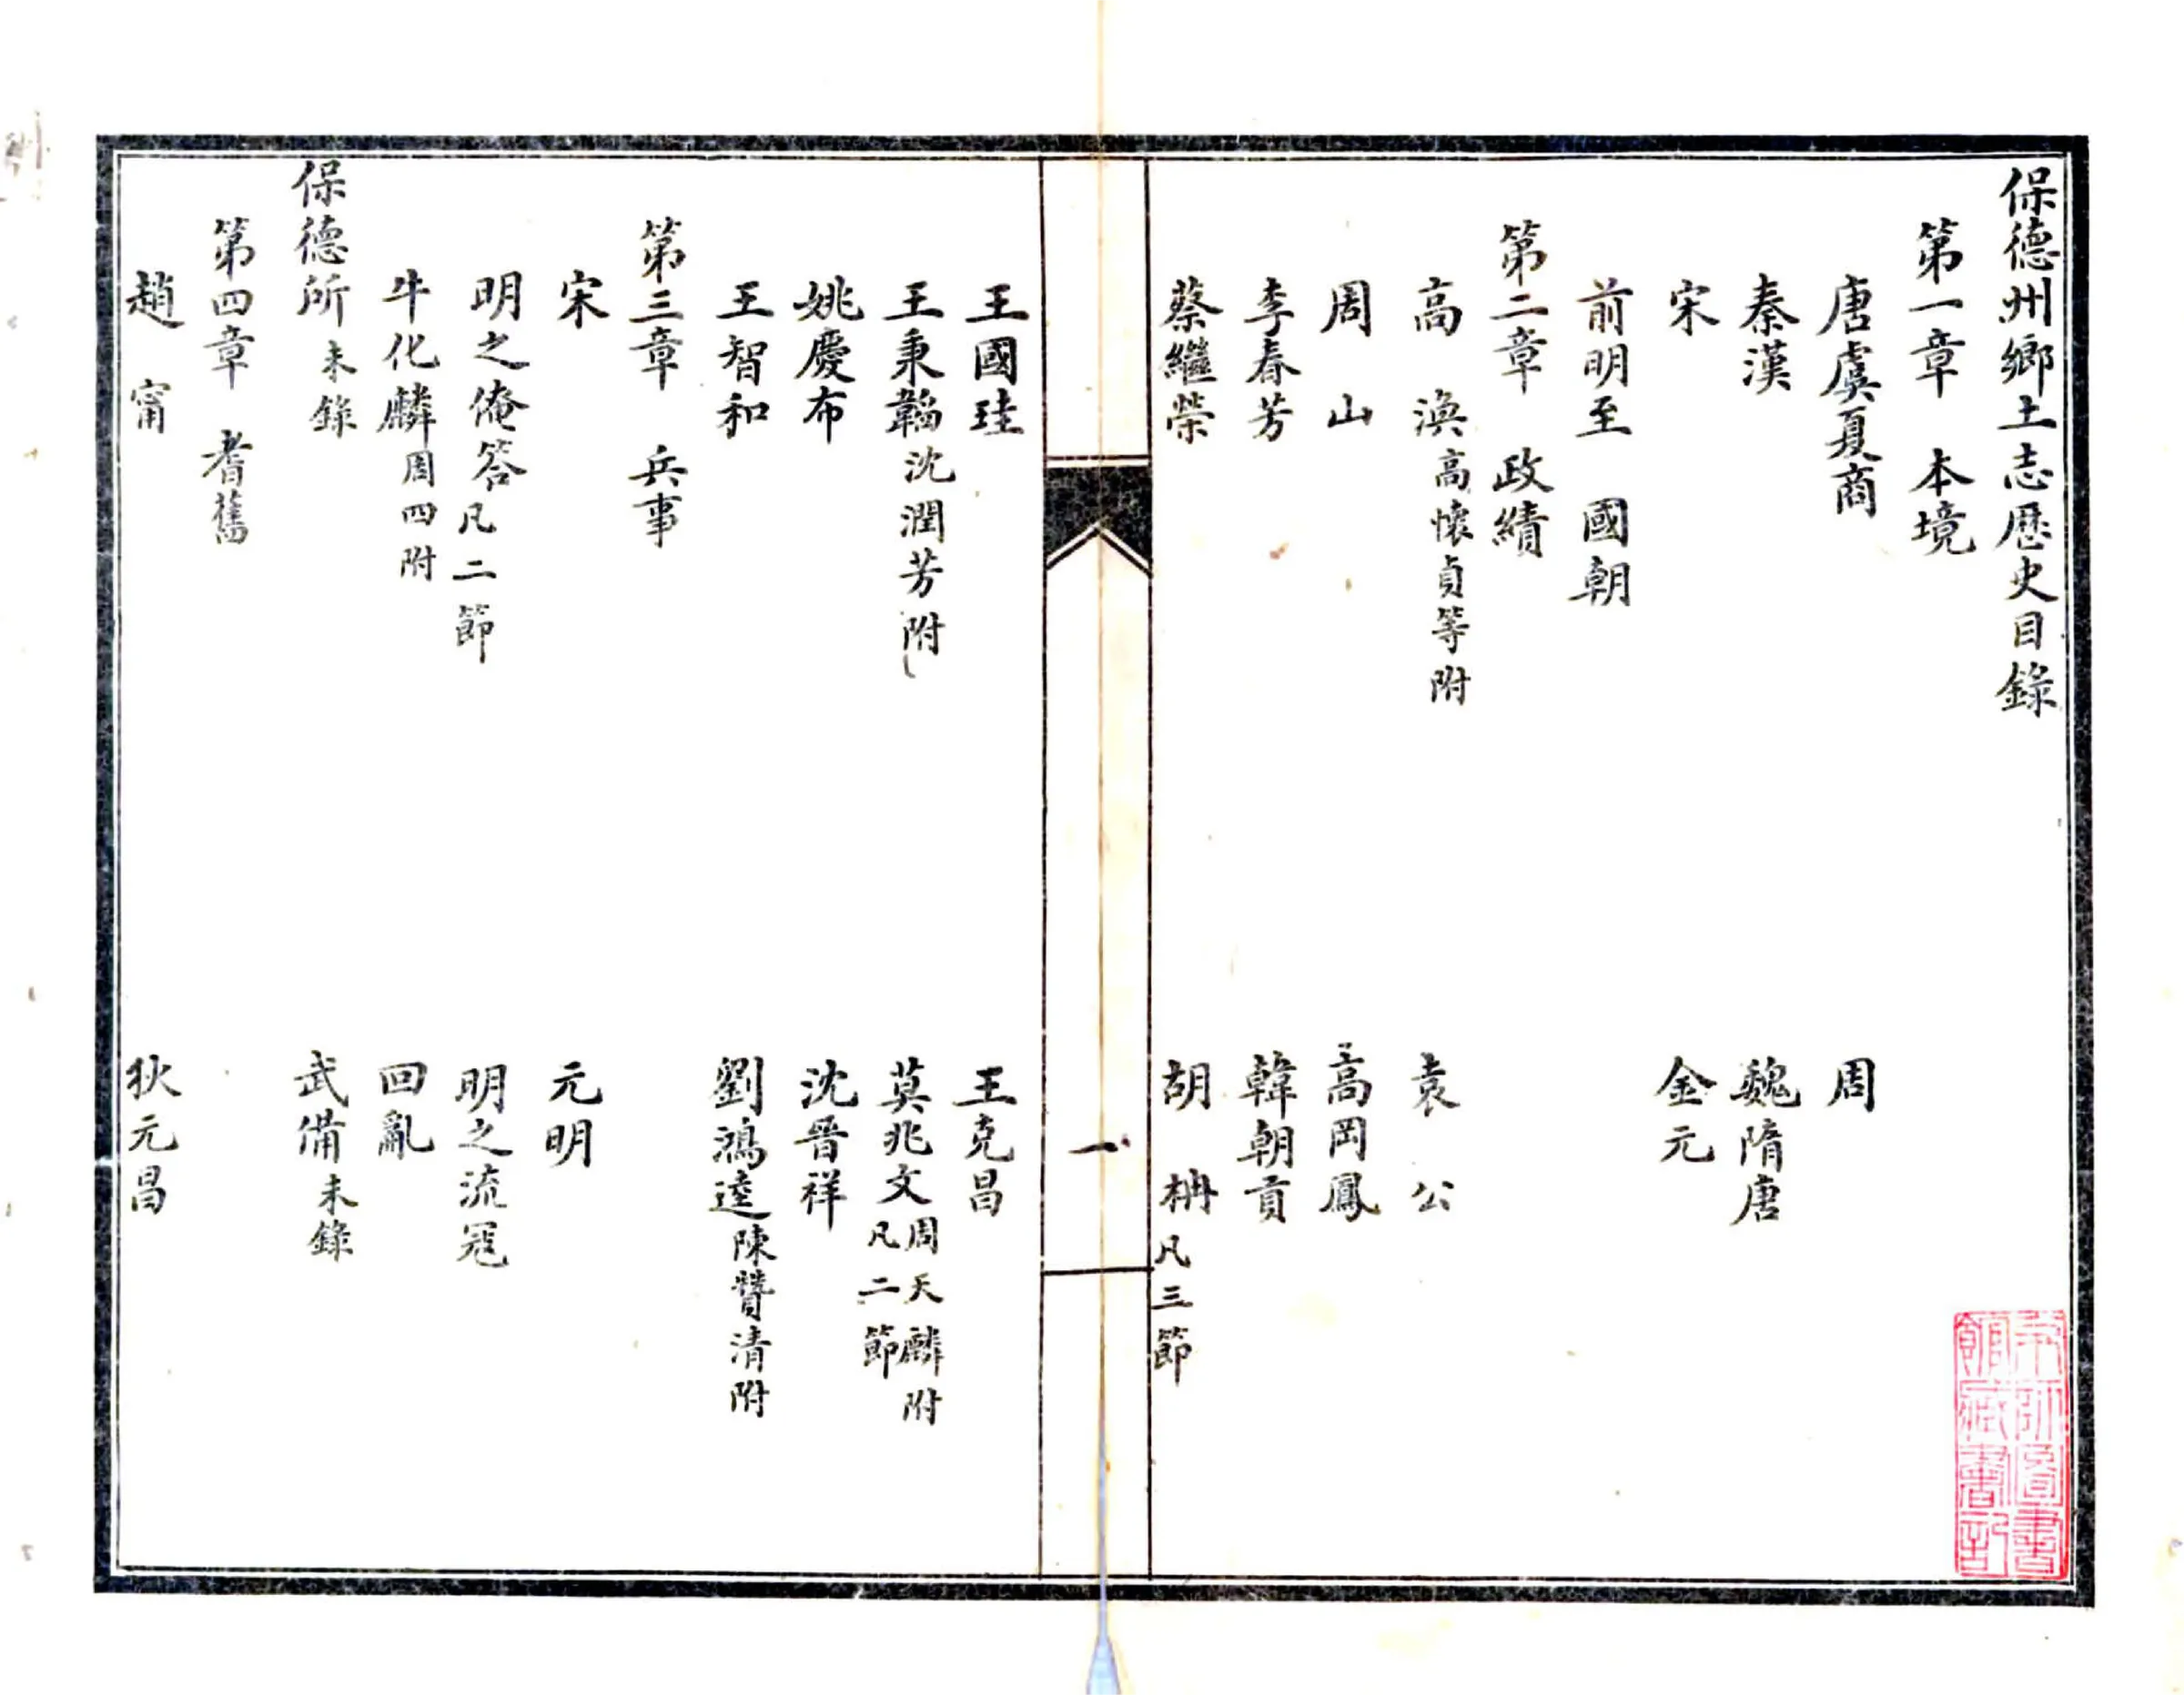 保德州鄉土志歷史目錄
第一章 本境
唐虞夏商 周
秦漢 魏隋唐
宋 金元
前明至 國朝
第二章 政績
高 渙高懷貞等附 袁 公
周 山 高岡鳳
李春芳 韓朝貢
蔡繼榮 胡 柟凡三節
一
王國珪 王克昌
王秉韜沈潤芳附 莫兆文周天麟附凡二節
姚慶布 沈晉祥
王智和 劉鴻逵陳贊清附
第三章 兵事
宋 元明
明之俺答凡二節 明之流冦
牛化麟周四附 回亂
保德所未錄 武備未錄
第四章 耆舊
趙 甯 狄元昌